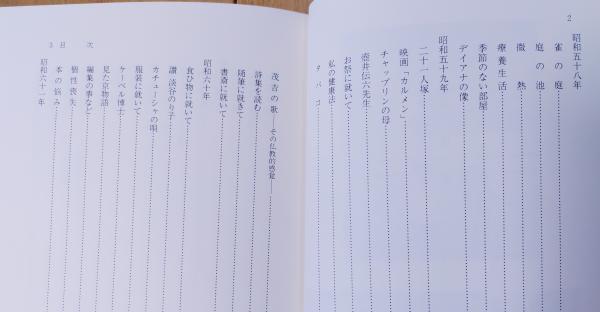 2
昭和五十八年
雀の庭
庭の池
微熱
療養生活
季節のない部屋
デイアナの像
昭和五十九年
二十一人塚
映画「カルメン」
チャップリンの母
壺井伝六先生
お祭に就いて
私の健康法
タバコ
茂吉の歌――その仏教的感覚――
詩集を読む
随筆に就きて
書斎に就いて
昭和六十年
食ひ物に就いて
讃 淡谷のり子
カチューシャの唄
服装に就いて
ケーベル博士
見た京物語
編集の事など
個性喪失
本の悩み
昭和六十一年
3 目次